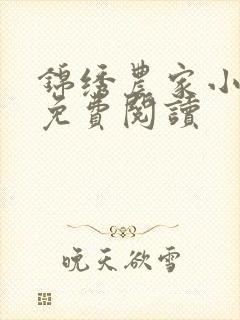 錦绣農家小
免費閱讀
晚天欲雪